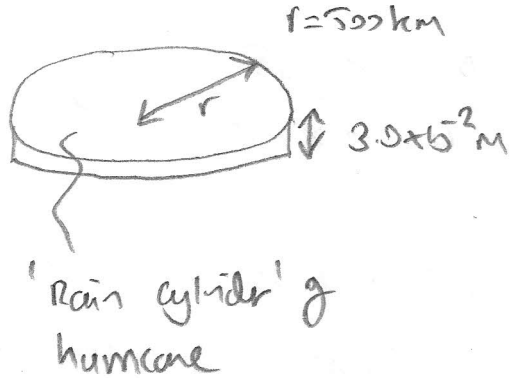 r=500km
r
3.0×10⁻²m
'Rain cylinder' of
hurricane